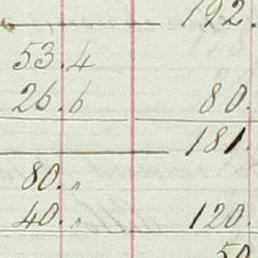 192.
53.4
26.6 80.
181.
80.„
40.„ 120.
50